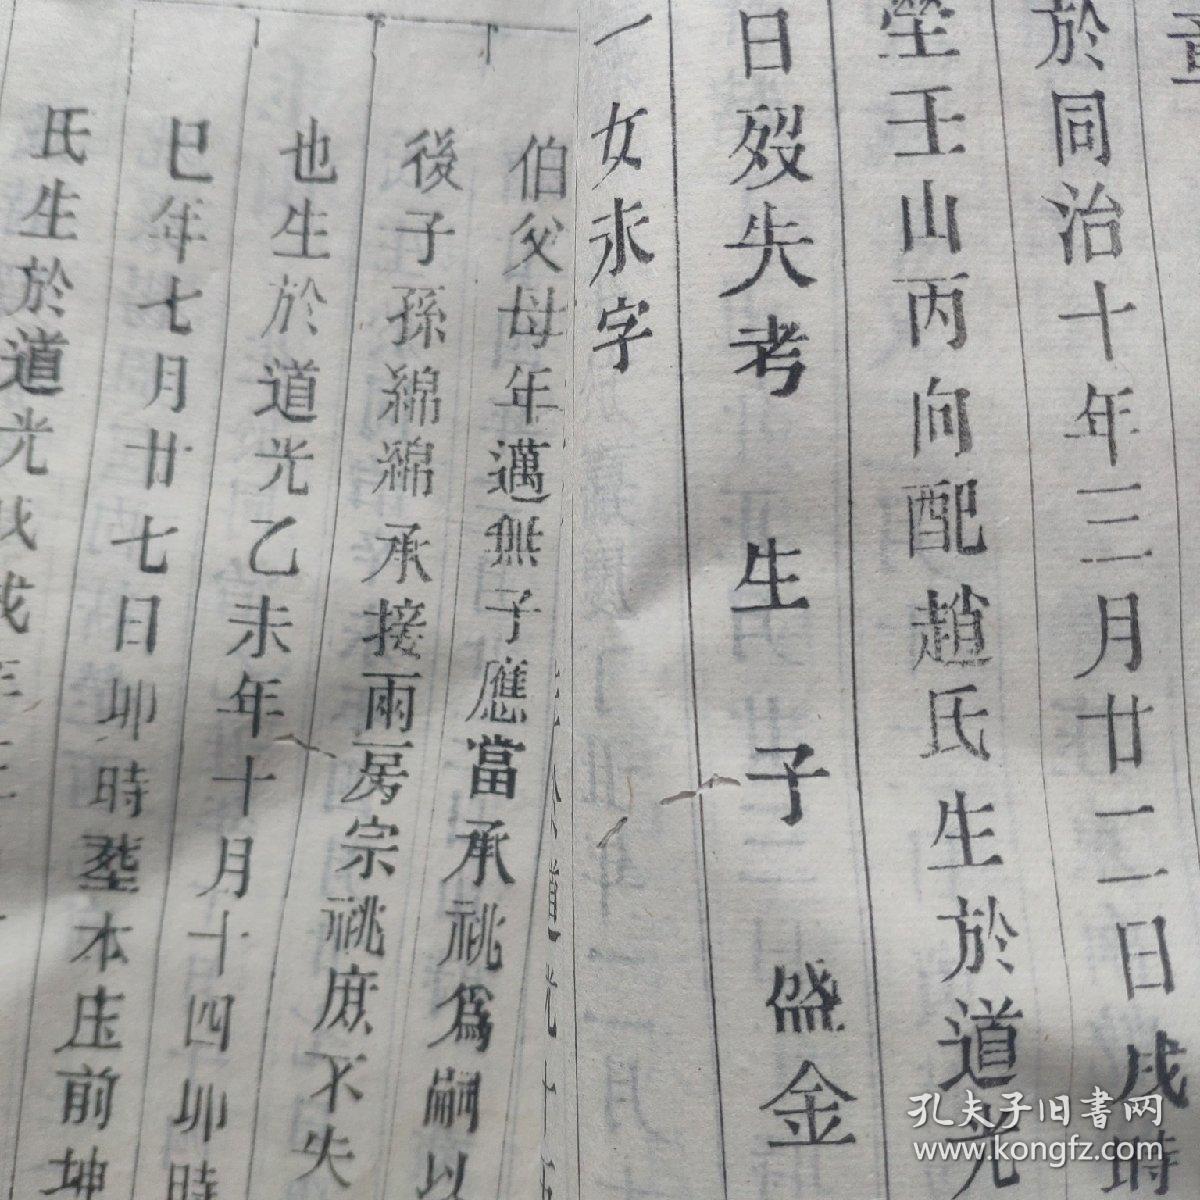 於同治十年三月廿二日戌時
塋壬山丙向配趙氏生於道光
日殁失考 生子 盛金
一女永字
伯父母年邁無子應當承祧爲嗣以
後子孫綿綿承接兩房宗祧庶不失
也生於道光乙未年十月十四卯時
巳年七月廿七日卯時塟本庄前坤
氏生於道光戊戌年
孔夫子旧書网
www.kongfz.com